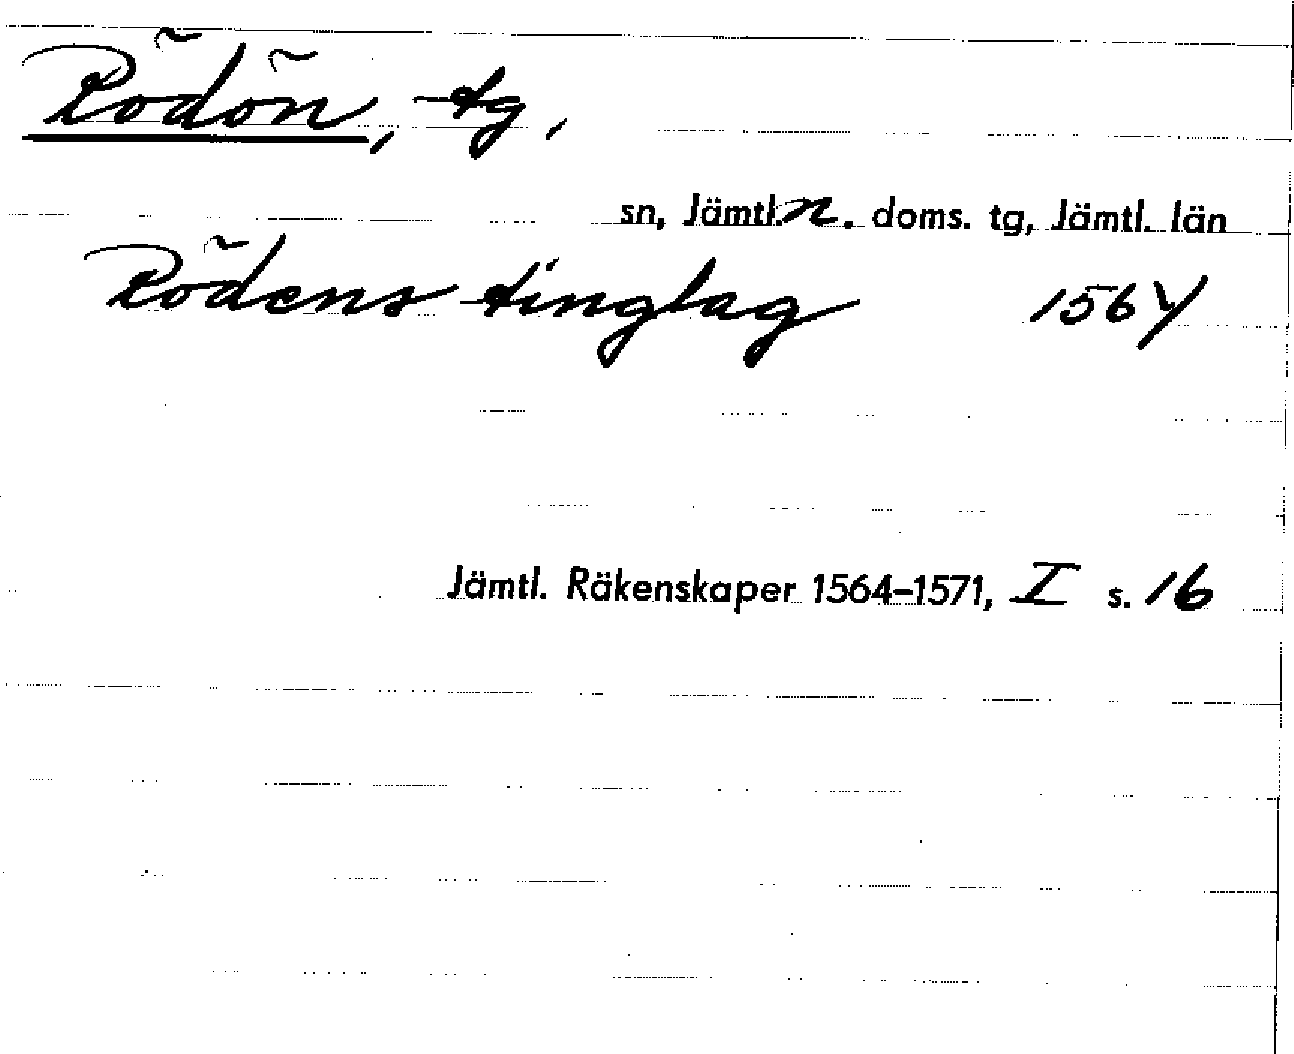 Rödön, tg,
sn, Jämtl. n. doms. tg, Jämtl. län
Rödens tinglag 1564
Jämtl. Räkenskaper 1564–1571, I s. 16